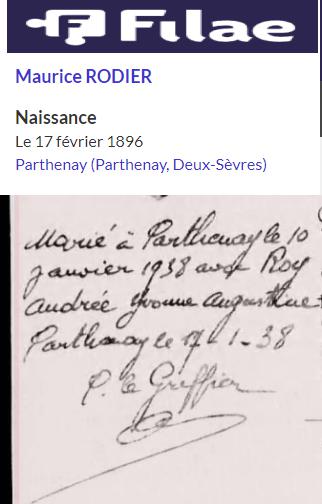 Filae
Maurice RODIER
Naissance
Le 17 février 1896
Parthenay (Parthenay, Deux-Sèvres)
Marié à Parthenay le 10
janvier 1938 avec Roy
Andrée Yvonne Augustine
Parthenay le 17-1-38
P. le Greffier